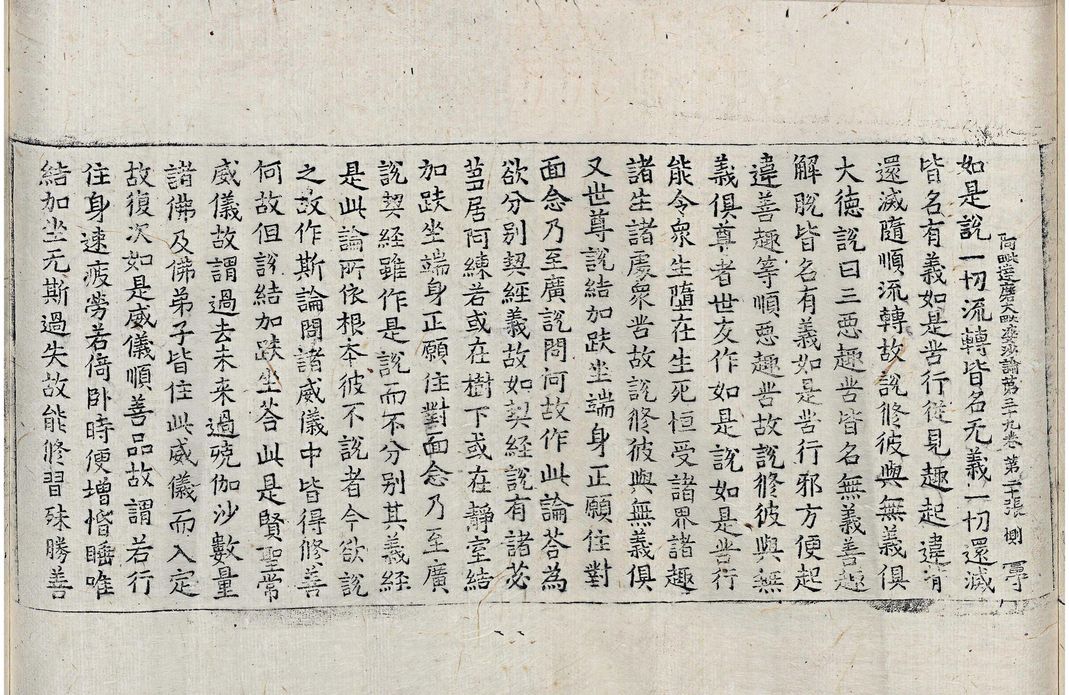 阿毗達磨大毗婆沙論苐三十九卷 第二十張 惻
如是說一切流轉皆名无義一切還滅
皆名有義如是苦行從見趣起違有
還滅隨順流轉故說修彼與無義俱
大德說曰三惡趣苦皆名無義善趣
解脫皆名有義如是苦行邪方便起
違善趣等順惡趣苦故說修彼與無
義俱尊者世友作如是說如是苦行
能令衆生墮在生死恒受諸界諸趣
諸生諸處衆苦故說修彼與無義俱
又世尊說結加趺坐端身正願住對
面念乃至廣說問何故作此論荅為
欲分別契經義故如契經說有諸苾
芻居阿練若或在樹下或在靜室結
加趺坐端身正願住對面念乃至廣
說契經雖作是說而不分別其義經
是此論所依根本彼不說者今欲說
之故作斯論問諸威儀中皆得修善
何故但說結加趺坐荅此是賢聖常
威儀故謂過去未来過殑伽沙數量
諸佛及佛弟子皆住此威儀而入定
故復次如是威儀順善品故謂若行
住身速疲勞若倚卧時便增惛睡唯
結加坐无斯過失故能修習殊勝善